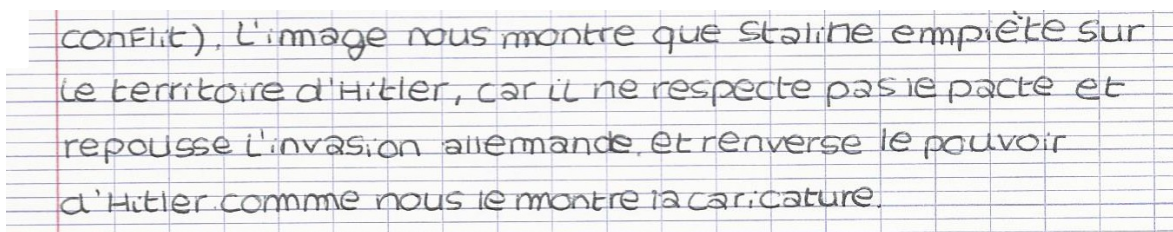 conflit). L'image nous montre que Staline empiète sur
le territoire d'Hitler, car il ne respecte pas le pacte et
repousse l'invasion allemande, et renverse le pouvoir
d'Hitler comme nous le montre la caricature.